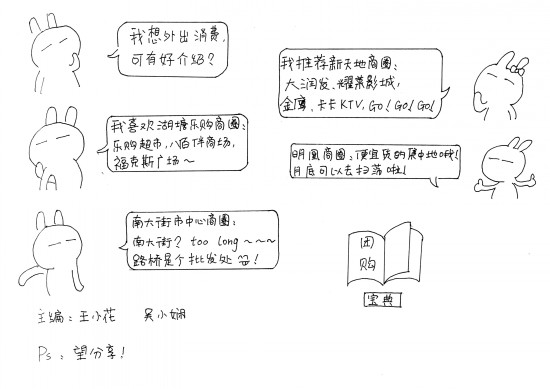 我想外出消费,
可有好介绍?
我推荐新天地商圈:
大润发、耀莱影城,
金鹰、卡卡KTV, GO! GO! GO!
我喜欢湖塘乐购商圈:
乐购超市,八佰伴商场,
福克斯广场~
明凰商圈:便宜货的集中地哦!
月底可以去扫荡啦!
南大街市中心商圈:
南大街? too long ~~~~
路桥是个批发处!
团
购
宝典
主编:王小花 吴小娴
Ps:望分享!